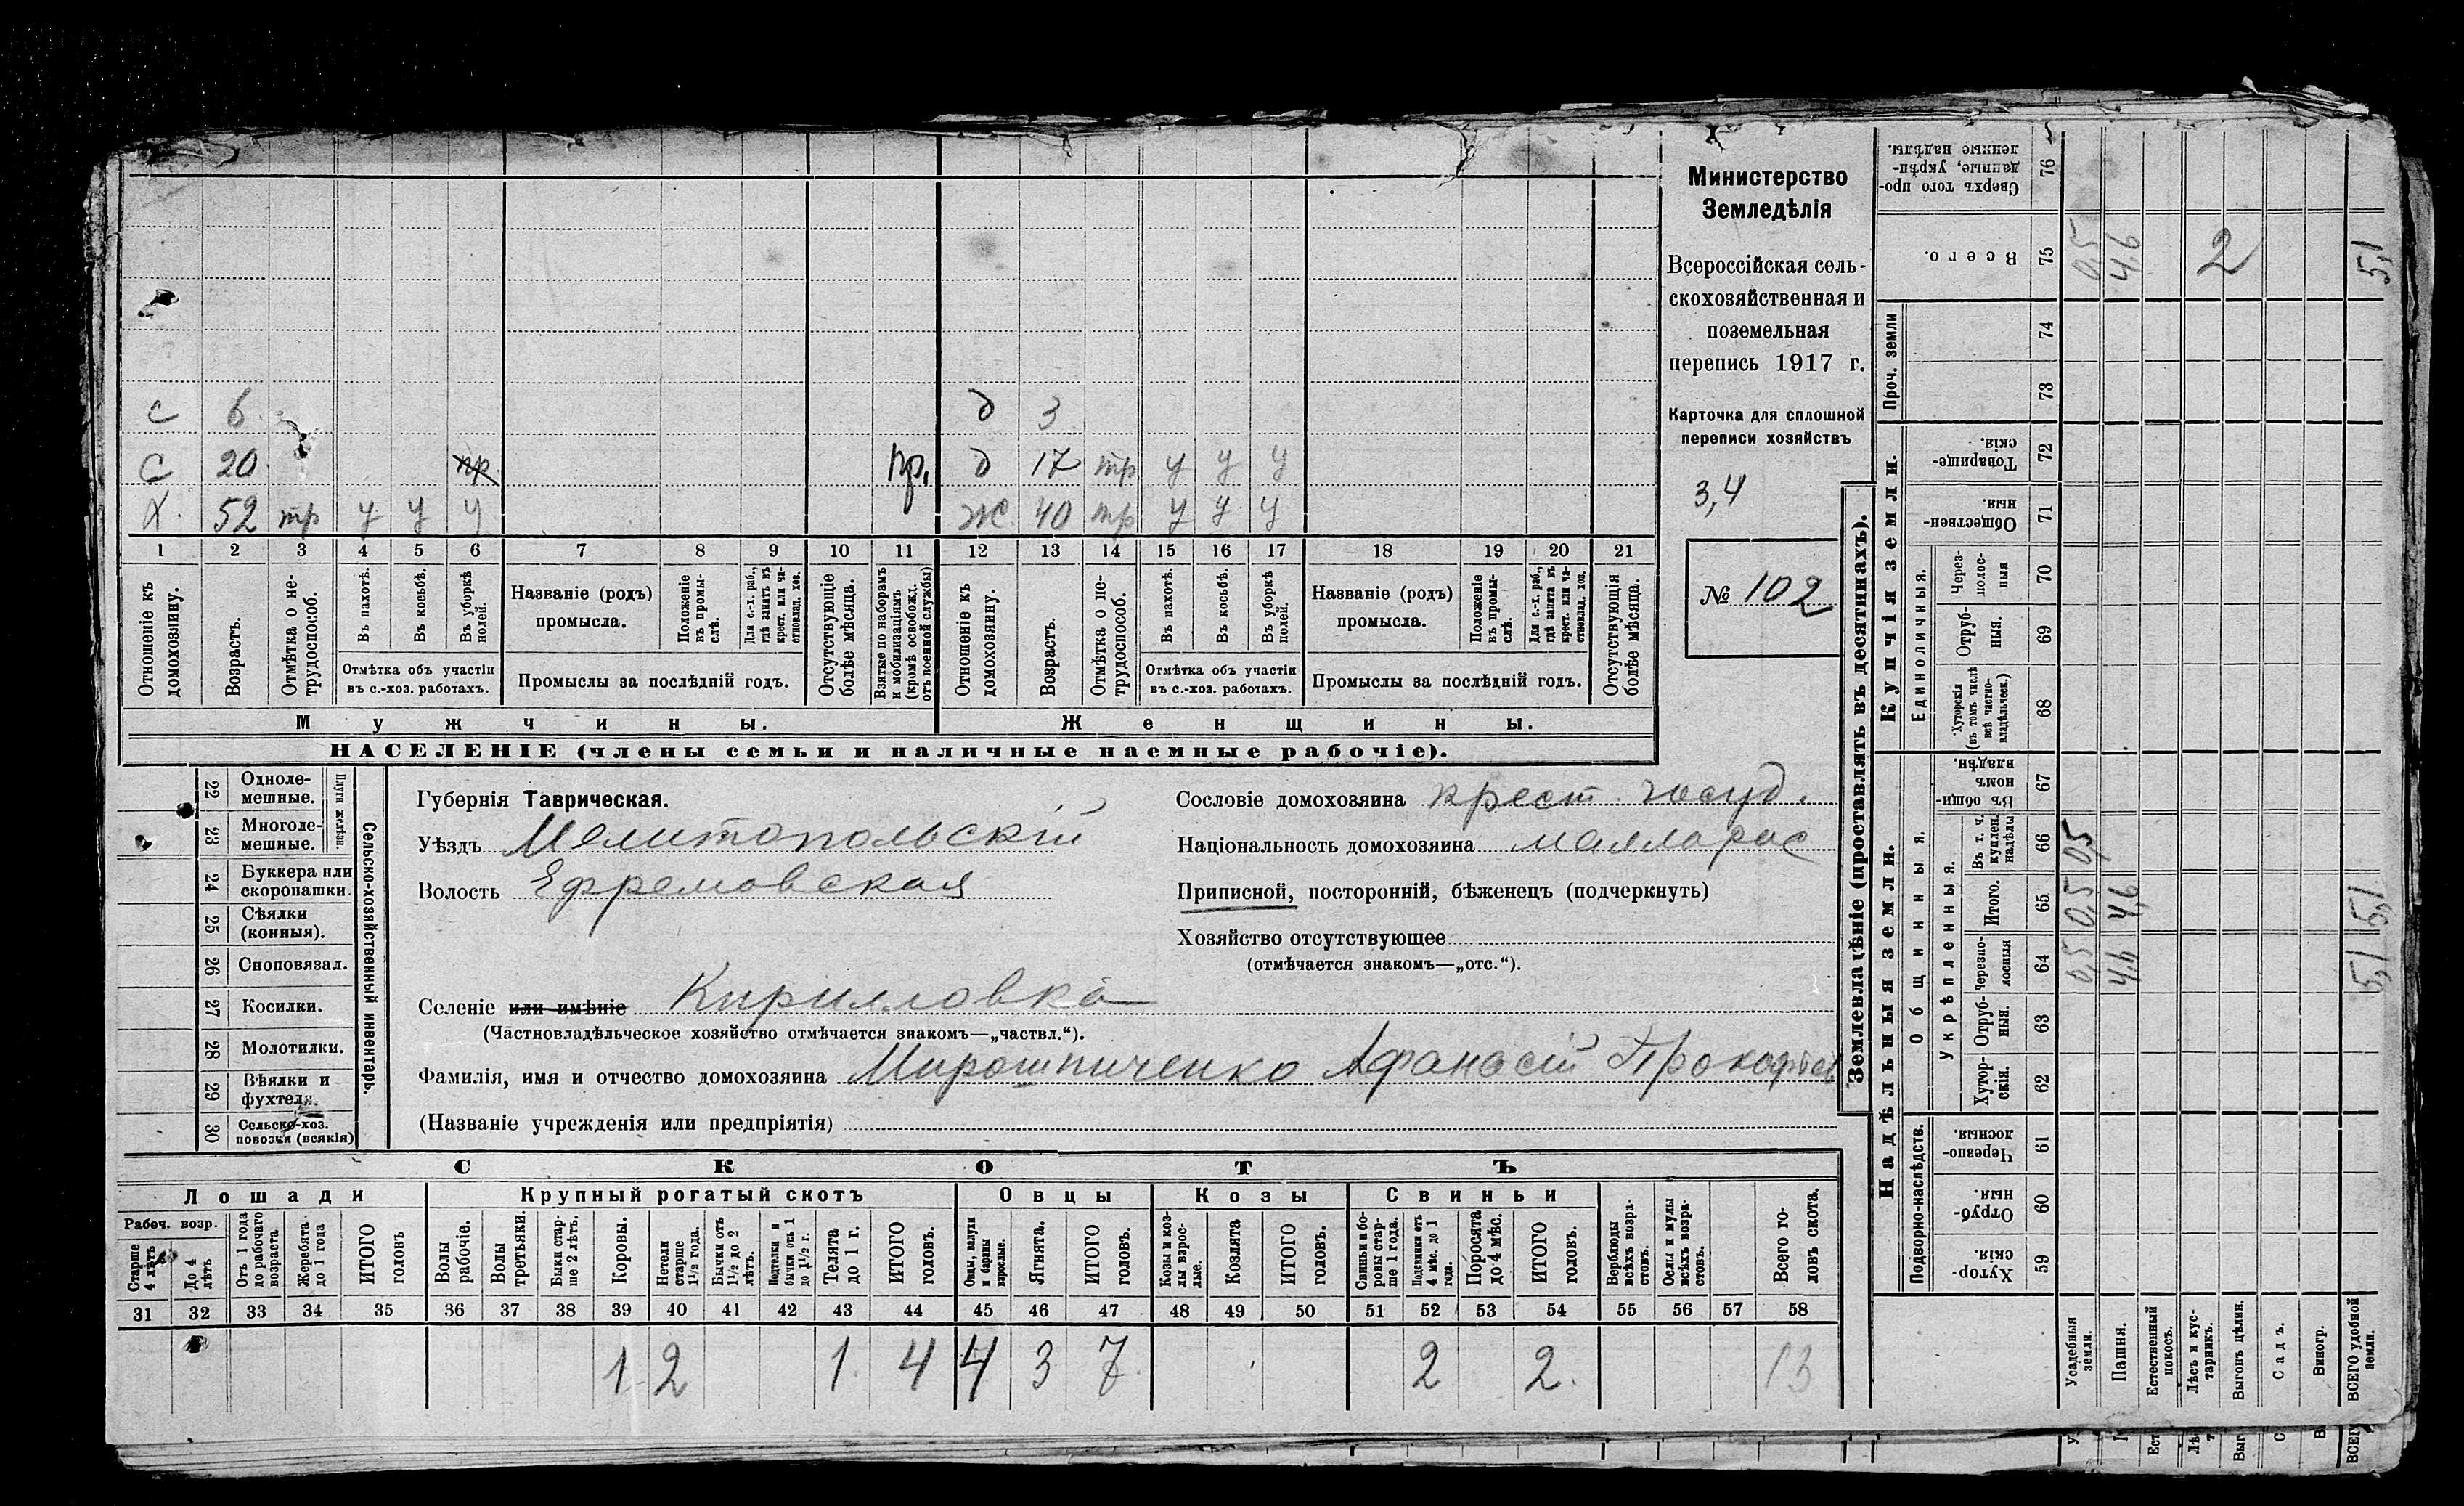 Министерство
Земледѣлія
Всероссійская сель-
скохозяйственная и
поземельная
перепись 1917 г.
Карточка для сплошной
переписи хозяйствъ
3,4
№ 102
с 6 д 3
с 20 пр. пр. д 17 тр у у у
х. 52 тр у у у ж. 40 тр у у у
1 2 3 4 5 6 7 8 9 10 11 12 13 14 15 16 17 18 19 20 21
Отношеніе къ домохозяину.
Возрастъ.
Отмѣтка о не-трудоспособ.
Въ пахотѣ.
Въ косьбѣ.
Въ уборкѣ полей.
Отмѣтка объ участіи
въ с.-хоз. работахъ.
Названіе (родъ)
промысла.
Положеніе въ промы-слѣ.
Для с.-х. раб., гдѣ занятъ въ крест. или ча-стновлад. хоз.
Промыслы за послѣдній годъ.
Отсутствующіе болѣе мѣсяца.
Взятые по наборамъ и мобилизаціямъ (кромѣ освобожд. отъ военной службы)
Отношеніе къ домохозяину.
Возрастъ.
Отмѣтка о не-трудоспособ.
Въ пахотѣ.
Въ косьбѣ.
Въ уборкѣ полей.
Отмѣтка объ участіи
въ с.-хоз. работахъ.
Названіе (родъ)
промысла.
Положеніе въ промы-слѣ.
Для с.-х. раб., гдѣ занята въ крест. или ча-стновлад. хоз.
Промыслы за послѣдній годъ.
Отсутствующія болѣе мѣсяца.
Мужчины. Женщины.
НАСЕЛЕНІЕ (члены семьи и наличные наемные рабочіе).
22 Одноле-мешные.
23 Многоле-мешные.
Плуги желѣзн.
24 Буккера или скоропашки.
25 Сѣялки (конныя).
26 Сноповязал.
27 Косилки.
28 Молотилки.
29 Вѣялки и фухтели.
30 Сельско-хоз. повозки (всякія)
Сельско-хозяйственный инвентарь.
Губернія Таврическая.
Уѣздъ Мелитопольскій
Волость Ефремовская
Сословіе домохозяина крест. госуд.
Національность домохозяина маллорос
Приписной, посторонній, бѣженецъ (подчеркнуть)
Хозяйство отсутствующее
(отмѣчается знакомъ—„отс.“).
Селеніе или имѣніе Кирилловка
(Частновладѣльческое хозяйство отмѣчается знакомъ—„частвл.“).
Фамилія, имя и отчество домохозяина Мирошниченко Афанасій Прокофьев
(Названіе учрежденія или предпріятія)
СКОТЪ
Лошади Крупный рогатый скотъ Овцы Козы Свиньи
Рабоч. возр.
Старше 4 лѣтъ
До 4 лѣтъ
Отъ 1 года до рабочаго возраста
Жеребята до 1 года
ИТОГО головъ
Волы рабочіе.
Волы третьяки.
Быки стар-ше 2 лѣтъ.
Коровы.
Нетели старше 1½ года.
Бычки отъ 1½ до 2 лѣтъ.
Подтелки и бычки отъ 1 до 1½ г.
Телята до 1 г.
ИТОГО головъ.
Овцы, валухи и бараны взрослые.
Ягнята.
ИТОГО головъ.
Козы и коз-лы взрос-лые.
Козлята
ИТОГО головъ.
Свиньи и бо-ровы стар-ше 1 года.
Подсвинки отъ 4 мѣс. до 1 года.
Поросята до 4 мѣс.
ИТОГО головъ.
Верблюды всѣхъ возра-стовъ.
Ослы и мулы всѣхъ возра-стовъ.
Всего го-ловъ скота.
31 32 33 34 35 36 37 38 39 40 41 42 43 44 45 46 47 48 49 50 51 52 53 54 55 56 57 58
1 2 1 4 4 3 7 2 2 13
Землевладѣніе (проставлять въ десятинахъ).
Сверхъ того про-данные, укрѣп-ленные надѣлы. 76
Всего. 75 0,5 4,6 2 5,1
Проч. земли 74 73
Купчія земли.
Товарище-скія. 72
Обществен-ныя 71
Единоличныя.
Через-полос-ныя 70
Отруб-ныя. 69
Хуторскія (въ томъ числѣ всѣ частно-владѣльческ.) 68
Надѣльныя земли.
Общинныя.
Въ общи-номъ владѣн. 67
Укрѣпленныя.
Въ т. ч. куплен. надѣлы 66 0,5
Итого. 65 0,5 4,6 5,1
Черезпо-лосныя 64 0,5 4,6 5,1
Отруб-ныя. 63
Хутор-скія. 62
Подворно-наслѣдств.
Черезпо-лосныя. 61
Отруб-ныя. 60
Хутор-скія. 59
Усадебныя земли.
Пашня.
Естественный покосъ.
Лѣсъ и кус-тарникъ.
Выгонъ цѣлин.
Садъ.
Виногр.
ВСЕГО удобной земли.